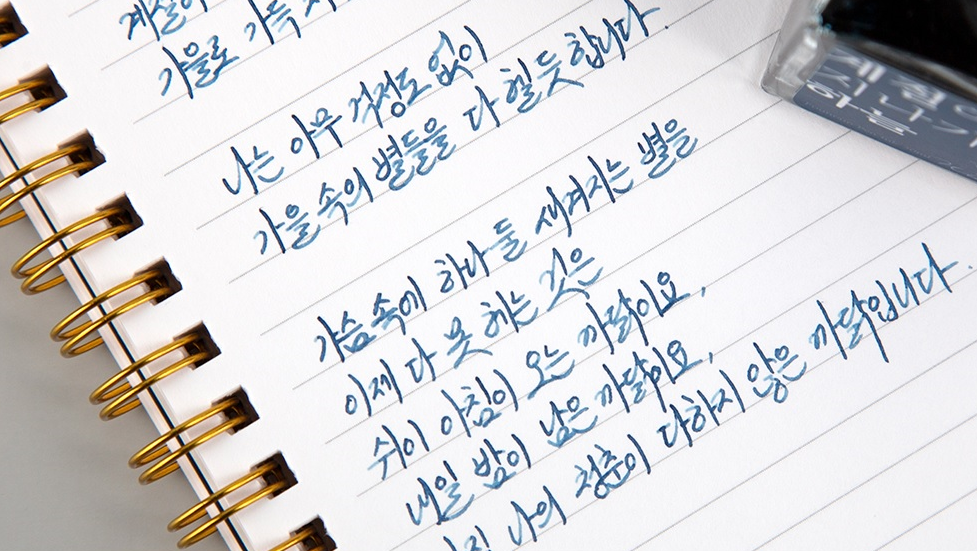 계절이
가을로 가득
나는 아무 걱정도 없이
가을 속의 별들을 다 헬 듯합니다.
가슴속에 하나 둘 새겨지는 별을
이제 다 못 헤는 것은
쉬이 아침이 오는 까닭이요,
내일 밤이 남은 까닭이요,
나의 청춘이 다하지 않은 까닭입니다.
계절이
지나가
하늘